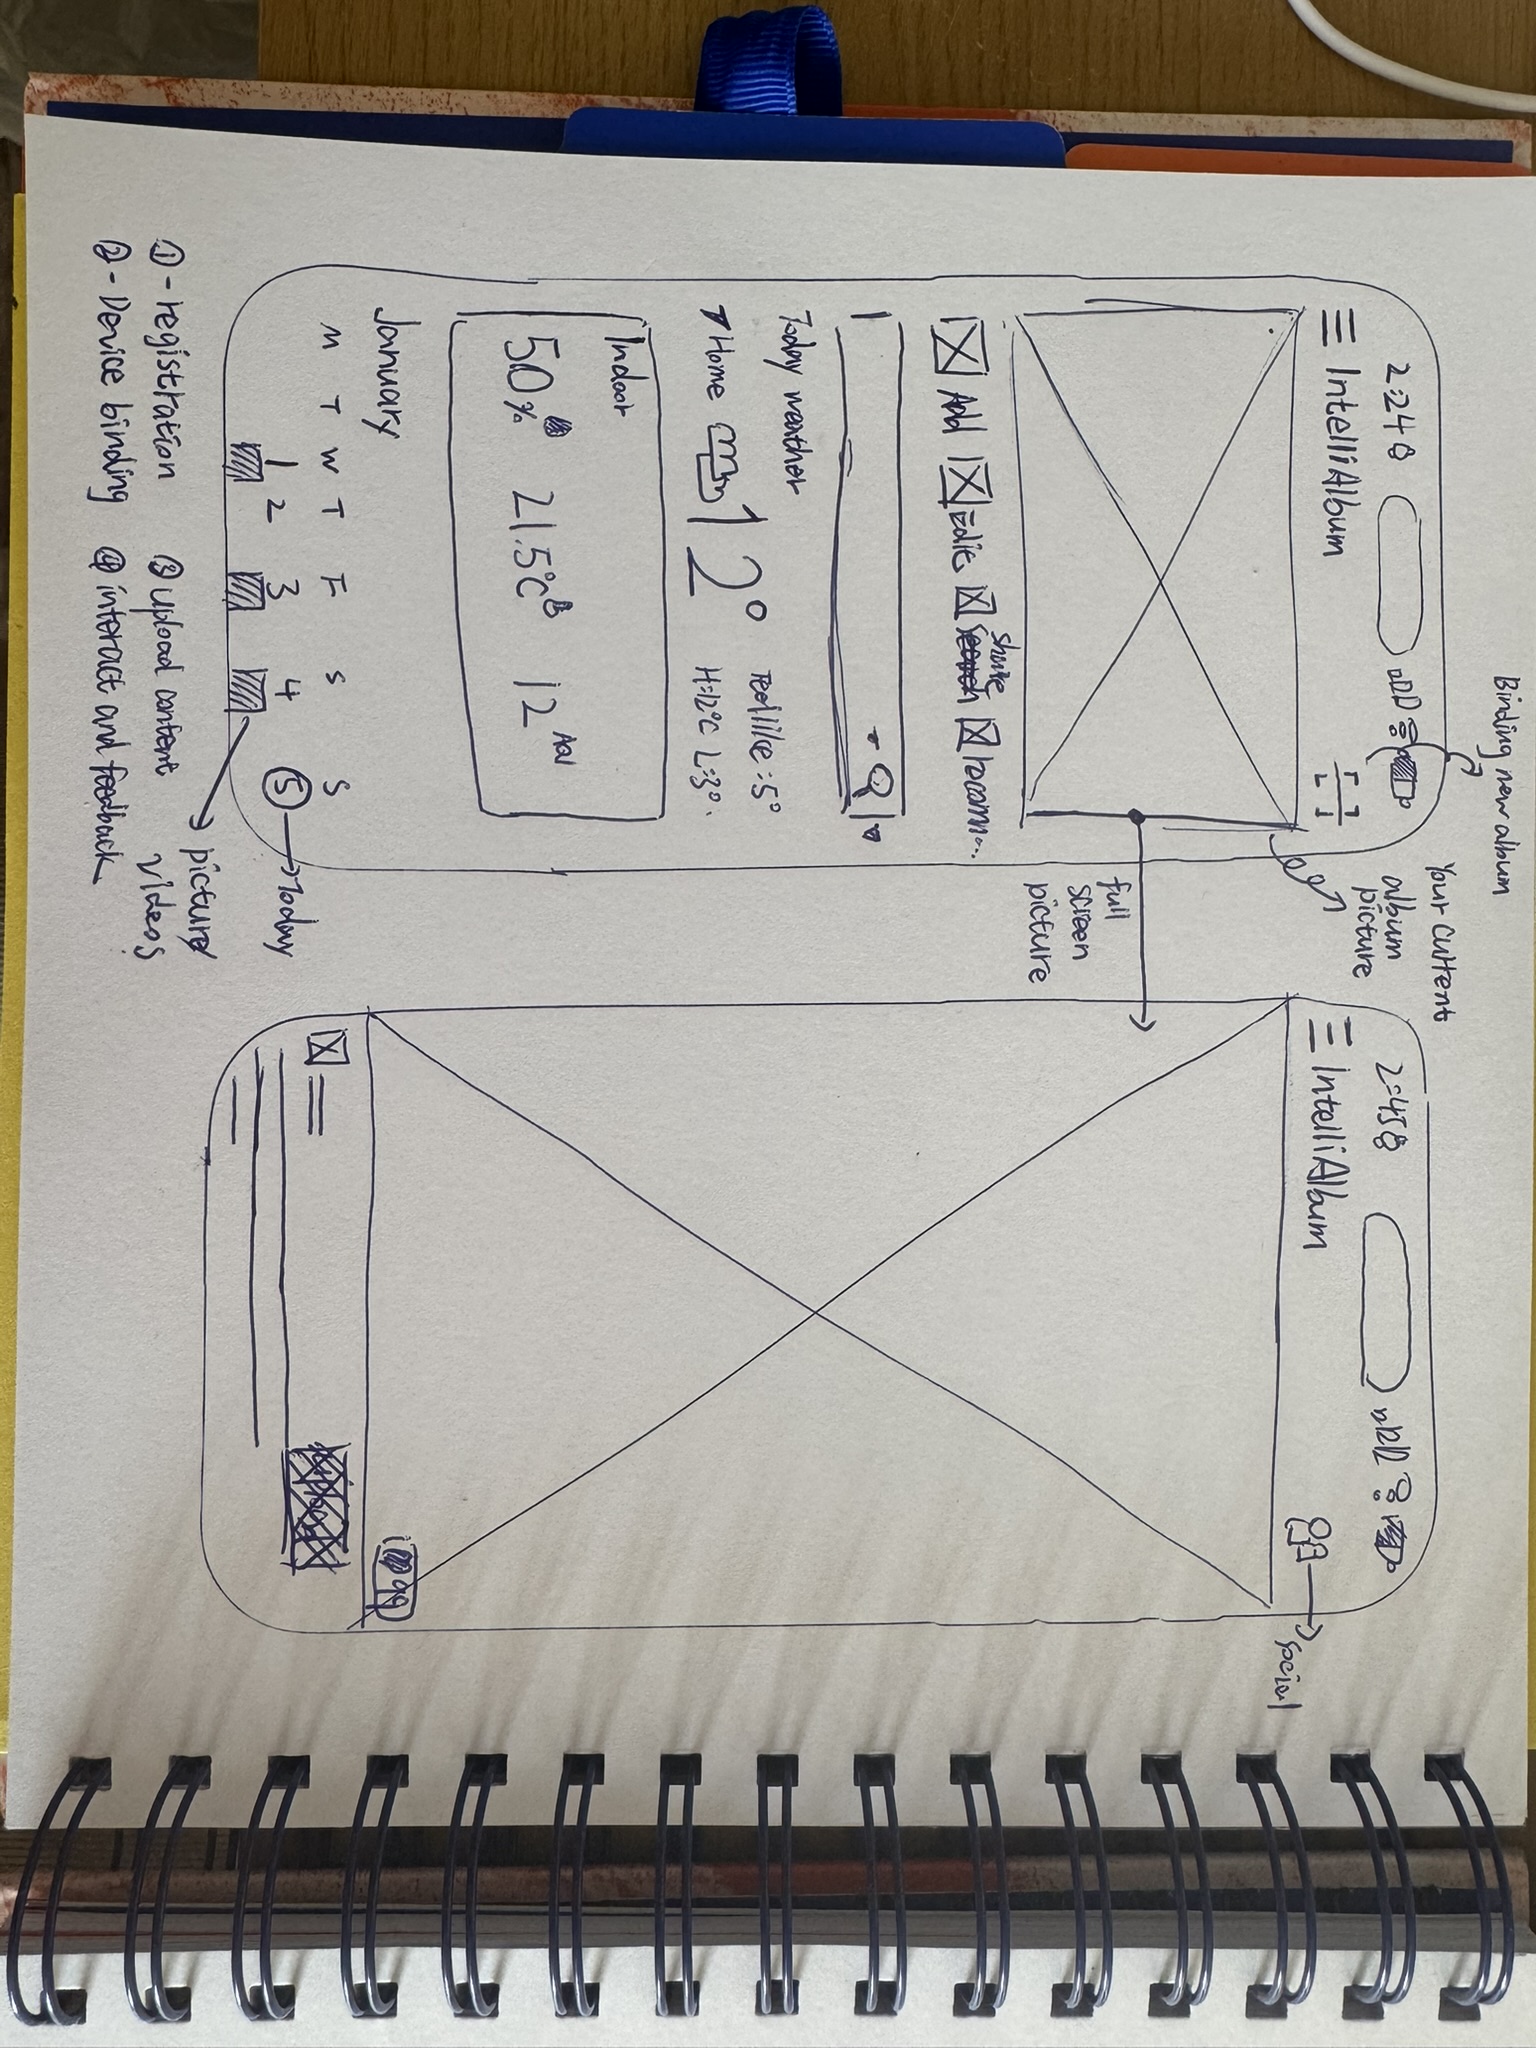 Binding new album
Your current
album
picture
2:24
IntelliAlbum
full
screen
picture
Add
Edit
share
recomm...
Today weather
Home
12°
Feel like: 5°
H:12°C L:3°
Indoor
50%
21.5°C
12 AQI
January
M T W T F S S
1 2 3 4 5
Today
picture
videos
① - registration
② - Device binding
③ upload content
④ interact and feedback
2:45
IntelliAlbum
social
99